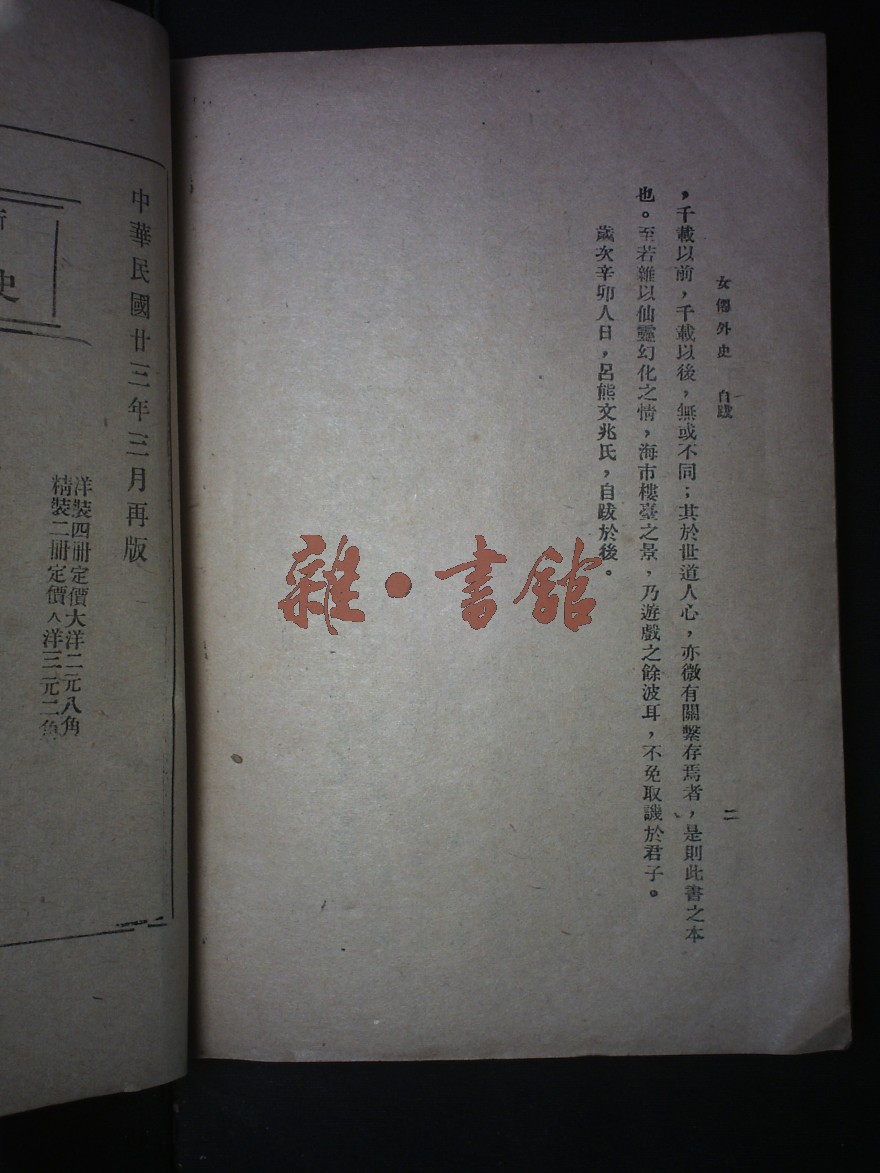 女僊外史 自跋
二
，千載以前，千載以後，無或不同；其於世道人心，亦微有關繫存焉者，是則此書之本
也。至若雜以仙靈幻化之情，海市樓臺之景，乃遊戲之餘波耳，不免取譏於君子。
歲次辛卯人日，呂熊文兆氏，自跋於後。
雜·書館
中華民國廿三年三月再版
洋裝四冊定價大洋二元八角
精裝二冊定價大洋三元二角
史